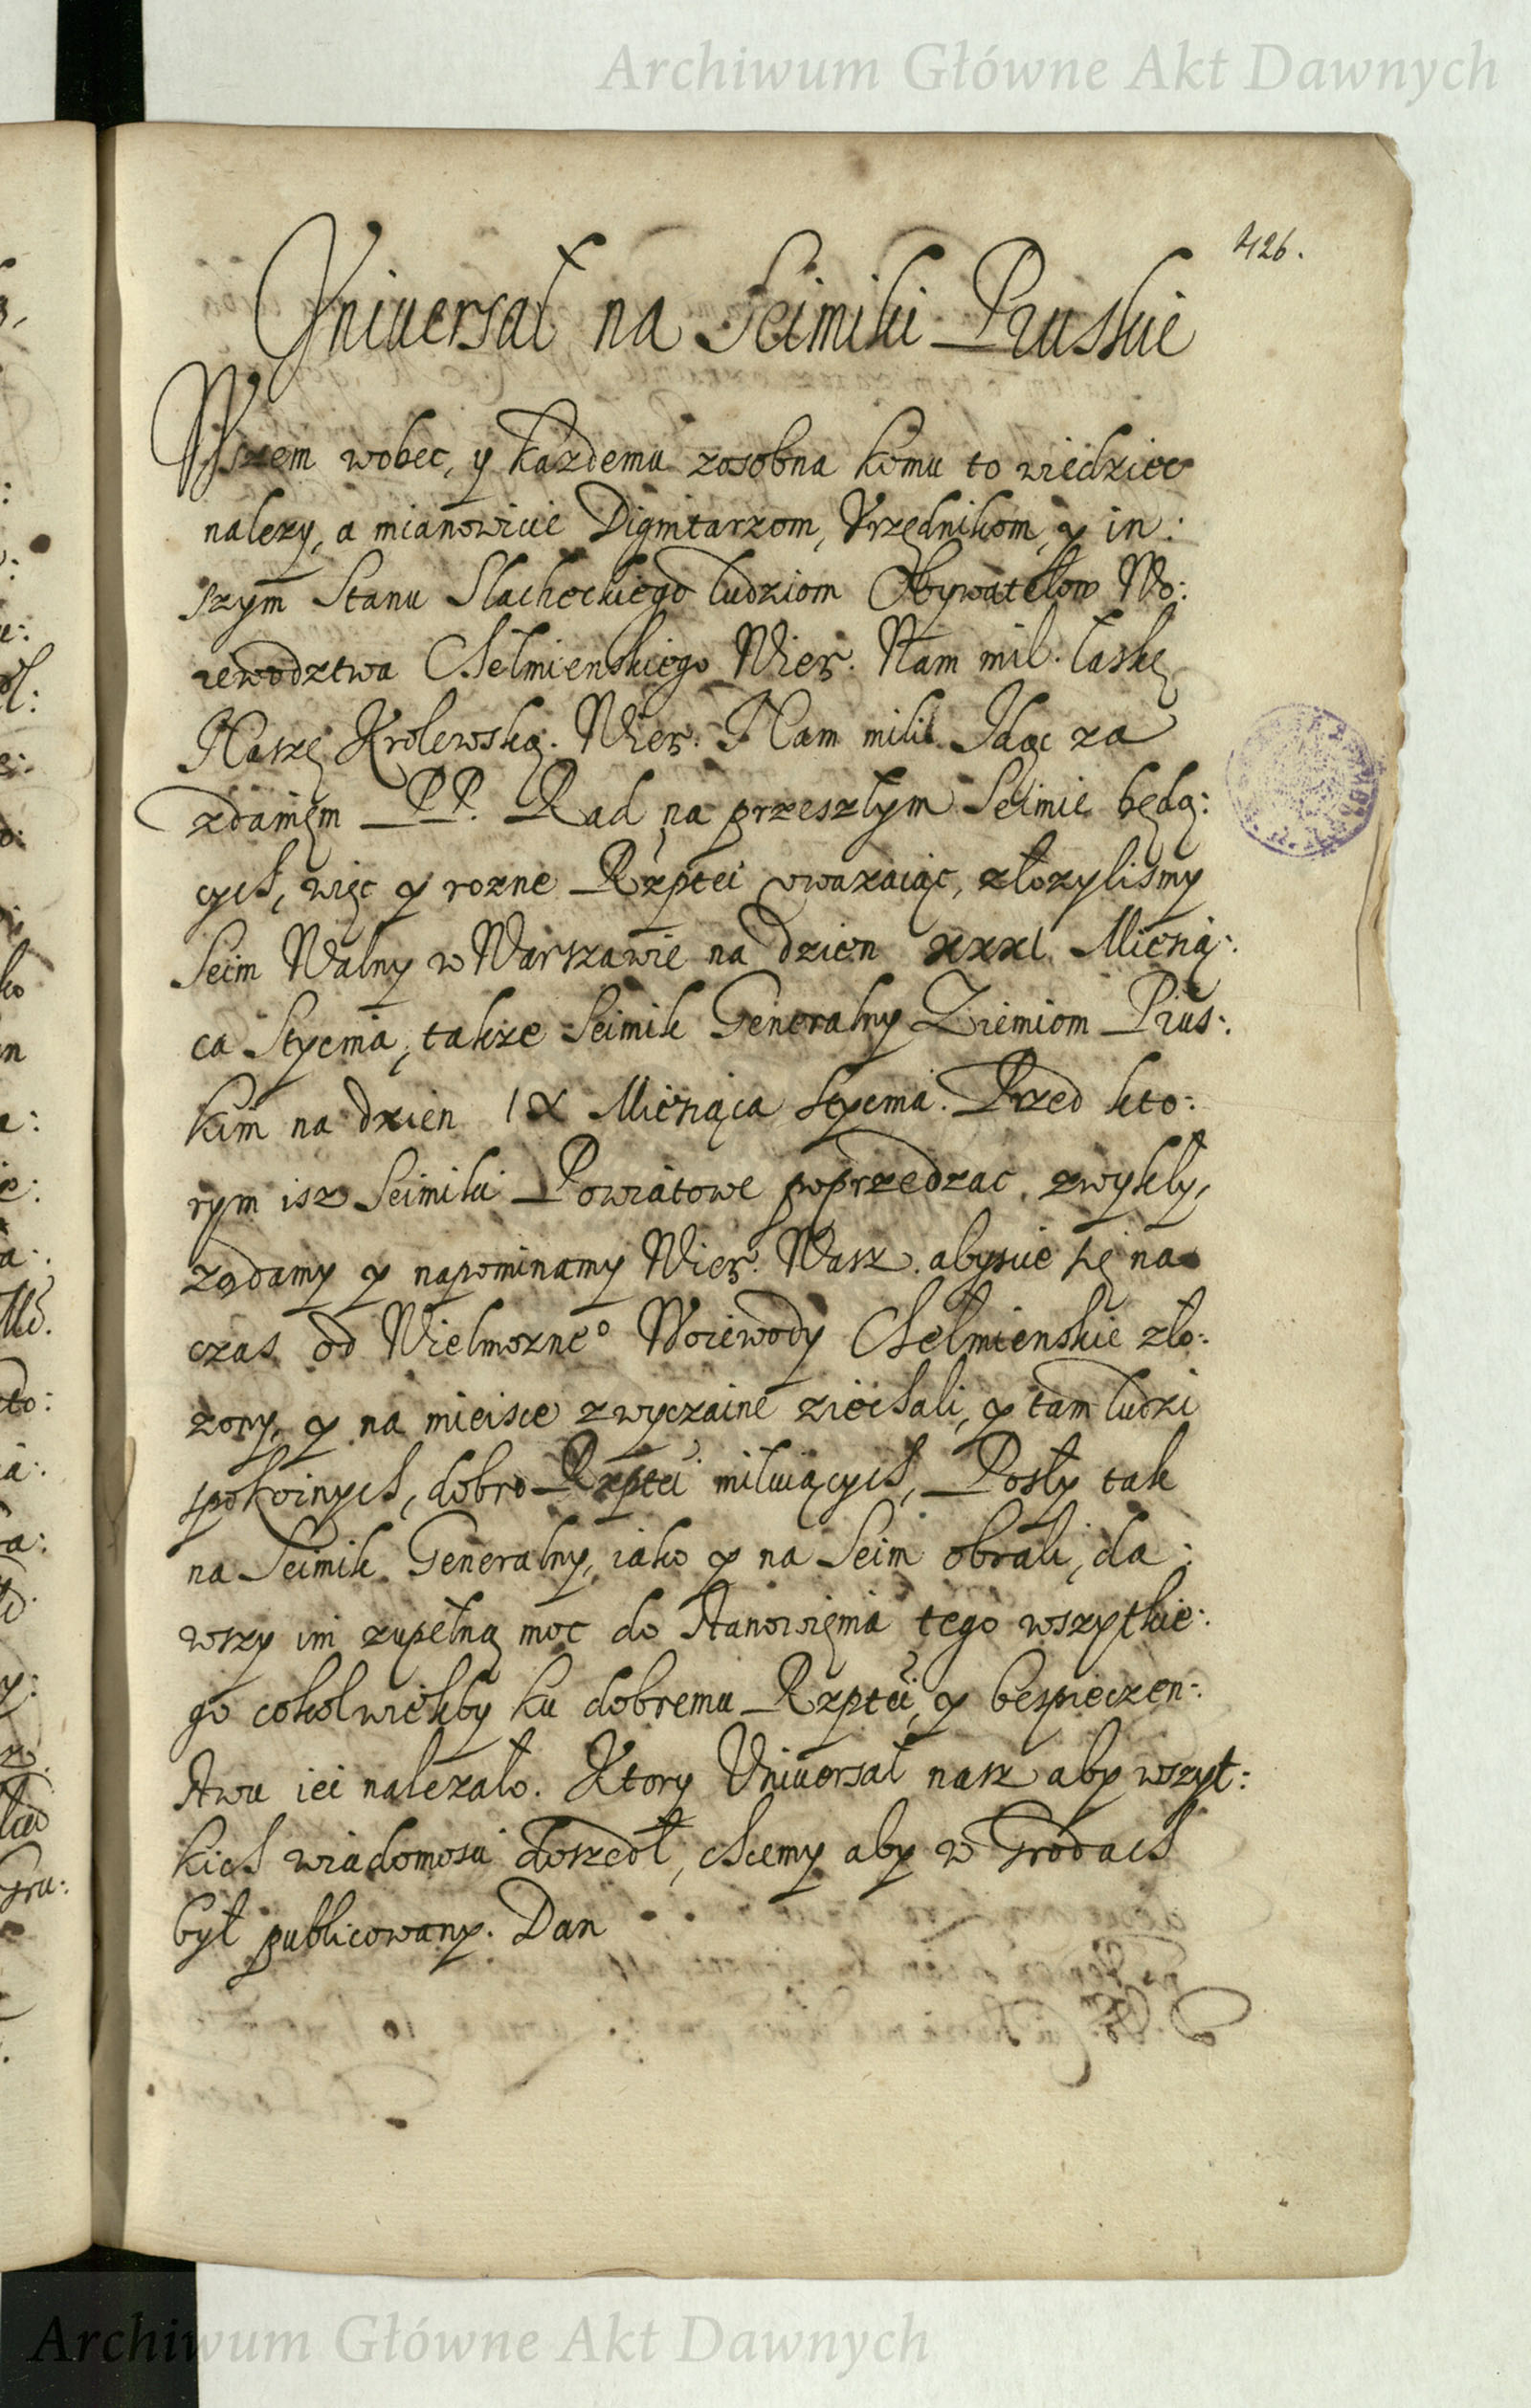 Archiwum Główne Akt Dawnych
426.
Vniuersał na Seimiki Pruskie
Wszem wobec, y każdemu zosobna komu to wiedziec
nalezy, a mianowicie Dignitarzom, Vrzędnikom, y in:
szym Stanu Slacheckiego ludziom Obywatelow Wo:
iewodztwa Chełmienskiego Wier. Nam mił. łaskę
Naszę Krolewską. Wier. Nam mili. Idąc za
zdanięm PP. Rad na przeszłym Seimie będą:
cych, więc y rozne Rzptei uwazaiąc, złozylismy
Seim Walny w Warszawie na dzien XXXI Miesią:
ca Stycznia, takze Seimik Generalny Ziemiom Prus:
kim na dzien IX Miesiąca Stycznia. Przed kto:
rym isz Seimiki Powiatowe poprzedzac zwykły,
ządamy y napominamy Wier. Wasz. abyscie się na
czas od Wielmozne° Woiewody Chełmienskie zło:
zony, y na mieisce zwyczaine ziechali, y tam ludzi
spokoinych, dobro Rzptei miłuiących, Posły tak
na Seimik Generalny, iako y na Seim obrali, da:
wszy im zupełną moc do stanowięnia tego wszytkie:
go cokolwiekby ku dobremu Rzptei, y bespieczen:
stwu iei nalezało. Ktory Vniuersał nasz aby wszyt:
kich wiadomosci doszedł, chcemy aby w Grodach
był publicowany. Dan
Archiwum Główne Akt Dawnych